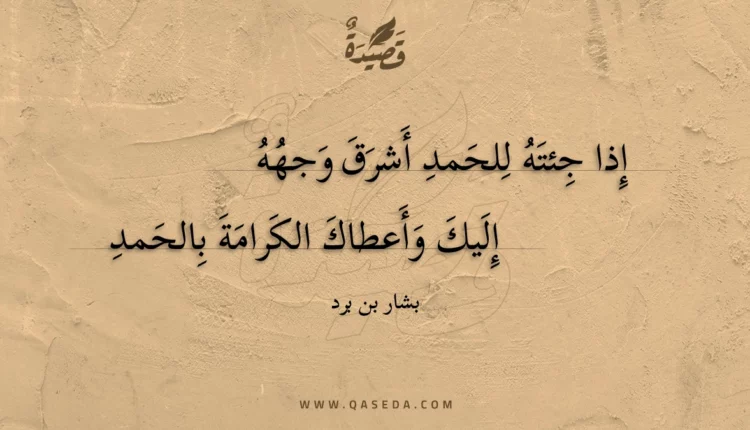 قَصِيدَةٌ
إِذا جِئتَهُ لِلحَمدِ أَشرَقَ وَجهُهُ
إِلَيكَ وَأَعطاكَ الكَرامَةَ بِالحَمدِ
بشار بن برد
WWW.QASEDA.COM